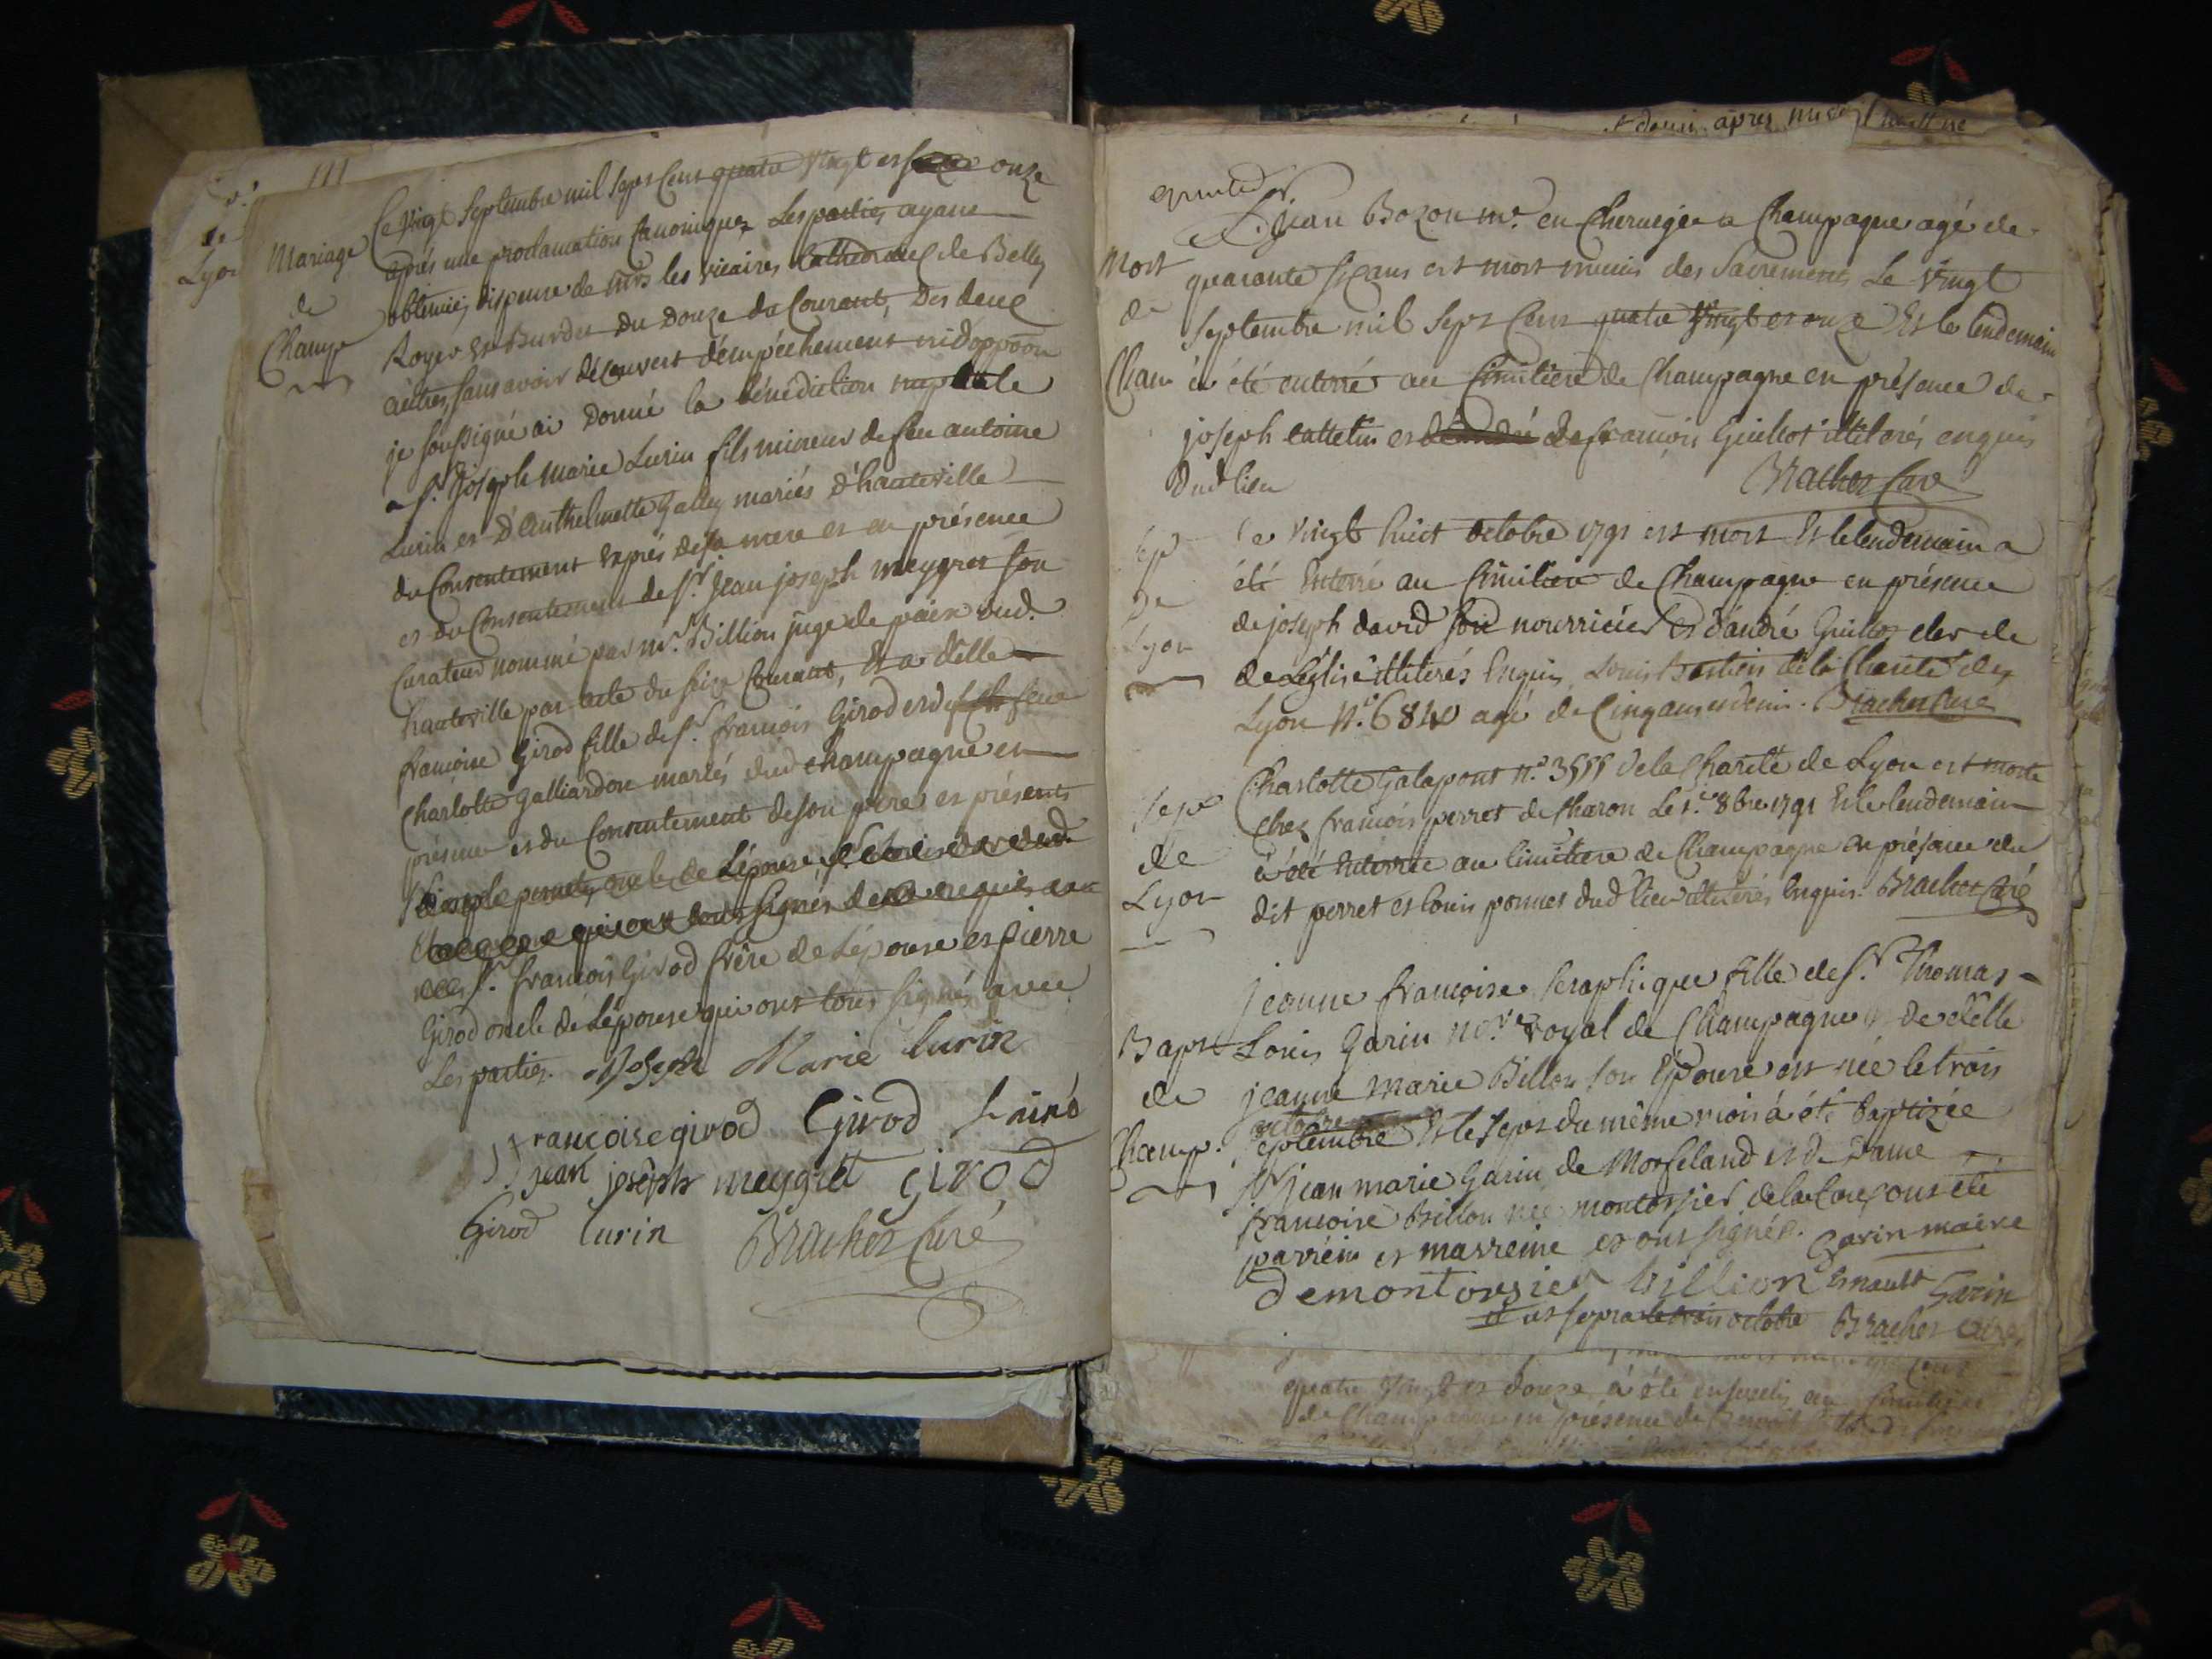 Lyon
Mariage
de
Champ
Ce vingt septembre mil sept cent quatre vingt et onze
après une proclamation canonique, Les parties ayans
obtenües dispense de les vicaires Cathedraux de Belley
Royer et Burdet du douze du Courant, des deux
autres, sans avoir découvert d'empêchement ni d'oppoon
je soussigné ai donné la bénédiction nuptiale
a sr. joseph marie Lurin fils mineur de feu antoine
Lurin et D'anthelmette Galley mariés d'hauteville
du Consentement exprés de sa mere et en présence
et du Consentement de sr. jean joseph meygret son
Curateur nommé par mr. Billion juge de paix dud.
hauteville par acte du seize Courant, Et a délle
francoise Girod fille de sr. francois Girod et de feue
Charlotte Galliardon mariés dud champagne en
présence et du Consentement de son pere et présents
oncle de L'épouse,
qui ont tous signés de ce requis
sr. francois Girod frère de L'épouse et pierre
Girod oncle de L'épouse qui ont tous signés avec
Les parties. Joseph Marie lurin
francoise girod Girod L'ainé
jean joseph meygret girod
Girod lurin Brachet Curé
et demi. après
Mort
de
Cham
Sr. jean Bozon me. en Cherurgie a Champagne agé de
quarante six ans est mort munis des Sacrements Le vingt
septembre mil sept Cent quatre vingt et onze Et le lendemain
à été enterré au Cimitiere de Champagne en présence de
joseph cattelin et de francois Guillot illiterés enquis
dud lieu
Brachet Curé
Sep
De
Lyon
Le vingt huit octobre 1791 est mort Et le lendemain a
été Enterré au Cimitiere de Champagne en présence
de joseph david son nourricier Et d'andré Guillot clerc de
de L'église illiterés Enquis, Louis Bastien de la Charité de
Lyon No. 6840 agé de Cinq ans et demi. Brachet Curé
Sepe
de
Lyon
Charlotte Galapont no. 3555 de la Charité de Lyon est morte
chez francois perret de Charon Le 1er. 8bre 1791 Et le lendemain
à été Enterrée au Cimitiere de Champagne en présence du
dit perret et louis ponnet dud lieu illiterés Enquis. Brachet Curé
Bapt
de
Champ.
jeanne francoise Seraphique fille de sr. Thomas
Louis Garin nore royal de Champagne & de délle
jeanne marie Billion son Epouse est née le trois
octobre
septembre Et le sept du même mois à été baptizée
sr jean marie Garin de Morfeland et de Dame
francoise Billion née montorsier de la Cou ont été
parrein et marreine et ont signés. Garin maire
demontorsier billion Esnault Garin
et est le trois octobre Brachet Curé
quatre vingt et douze à été enseveli au Cimitiere
de Champagne en présence de Benoit